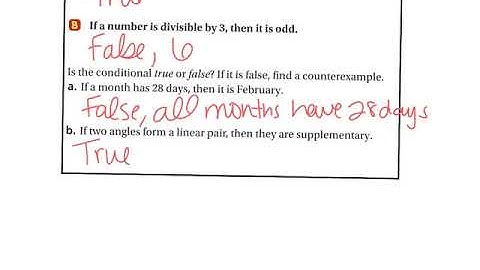 True
B If a number is divisible by 3, then it is odd.
False, 6
Is the conditional true or false? If it is false, find a counterexample.
a. If a month has 28 days, then it is February.
False, all months have 28 days
b. If two angles form a linear pair, then they are supplementary.
True